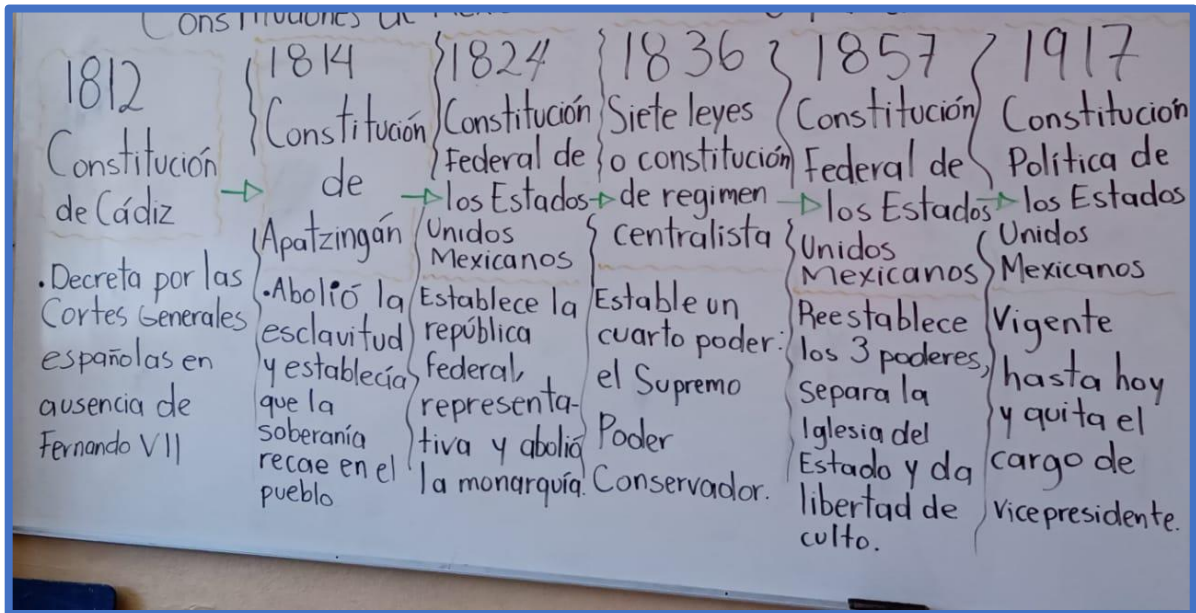 Constituciones de
1812
Constitución
de Cádiz
.Decreta por las
Cortes Generales
españolas en
ausencia de
Fernando VII
1814
Constitución
de
Apatzingán
.Abolió la
esclavitud
y establecía
que la
soberanía
recae en el
pueblo
1824
Constitución
Federal de
los Estados
Unidos
Mexicanos
Establece la
república
federal,
representa-
tiva y abolió
la monarquía.
1836
Siete leyes
o constitución
de regimen
centralista
Estable un
cuarto poder:
el Supremo
Poder
Conservador.
1857
Constitución
Federal de
los Estados
Unidos
Mexicanos
Reestablece
los 3 poderes,
separa la
Iglesia del
Estado y da
libertad de
culto.
1917
Constitución
Política de
los Estados
Unidos
Mexicanos
Vigente
hasta hoy
y quita el
cargo de
vicepresidente.